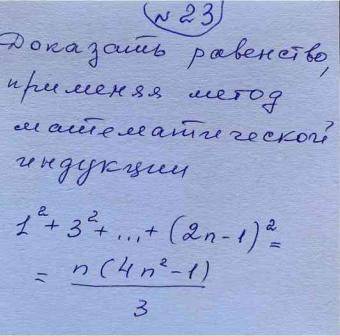 № 23
Доказать равенство,
применяя метод
математической
индукции
1² + 3² + ... + (2n-1)² =
= n(4n²-1)
3